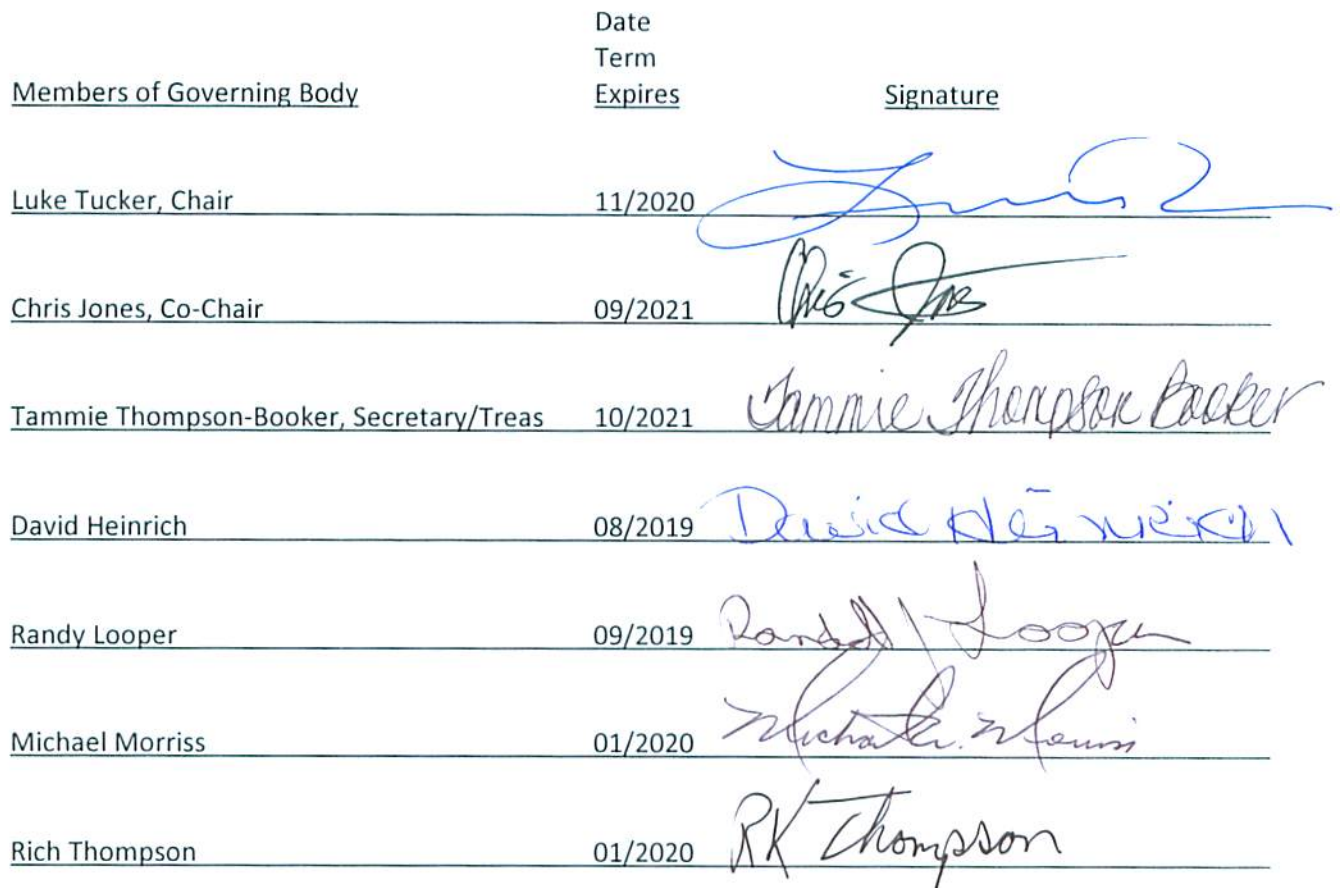 Date
Term
Members of Governing Body Expires Signature
Luke Tucker, Chair 11/2020
Chris Jones, Co-Chair 09/2021 Chris Jones
Tammie Thompson-Booker, Secretary/Treas 10/2021 Tammie Thompson Booker
David Heinrich 08/2019 David Heinrich
Randy Looper 09/2019 Looper
Michael Morriss 01/2020 Morriss
Rich Thompson 01/2020 RK Thompson